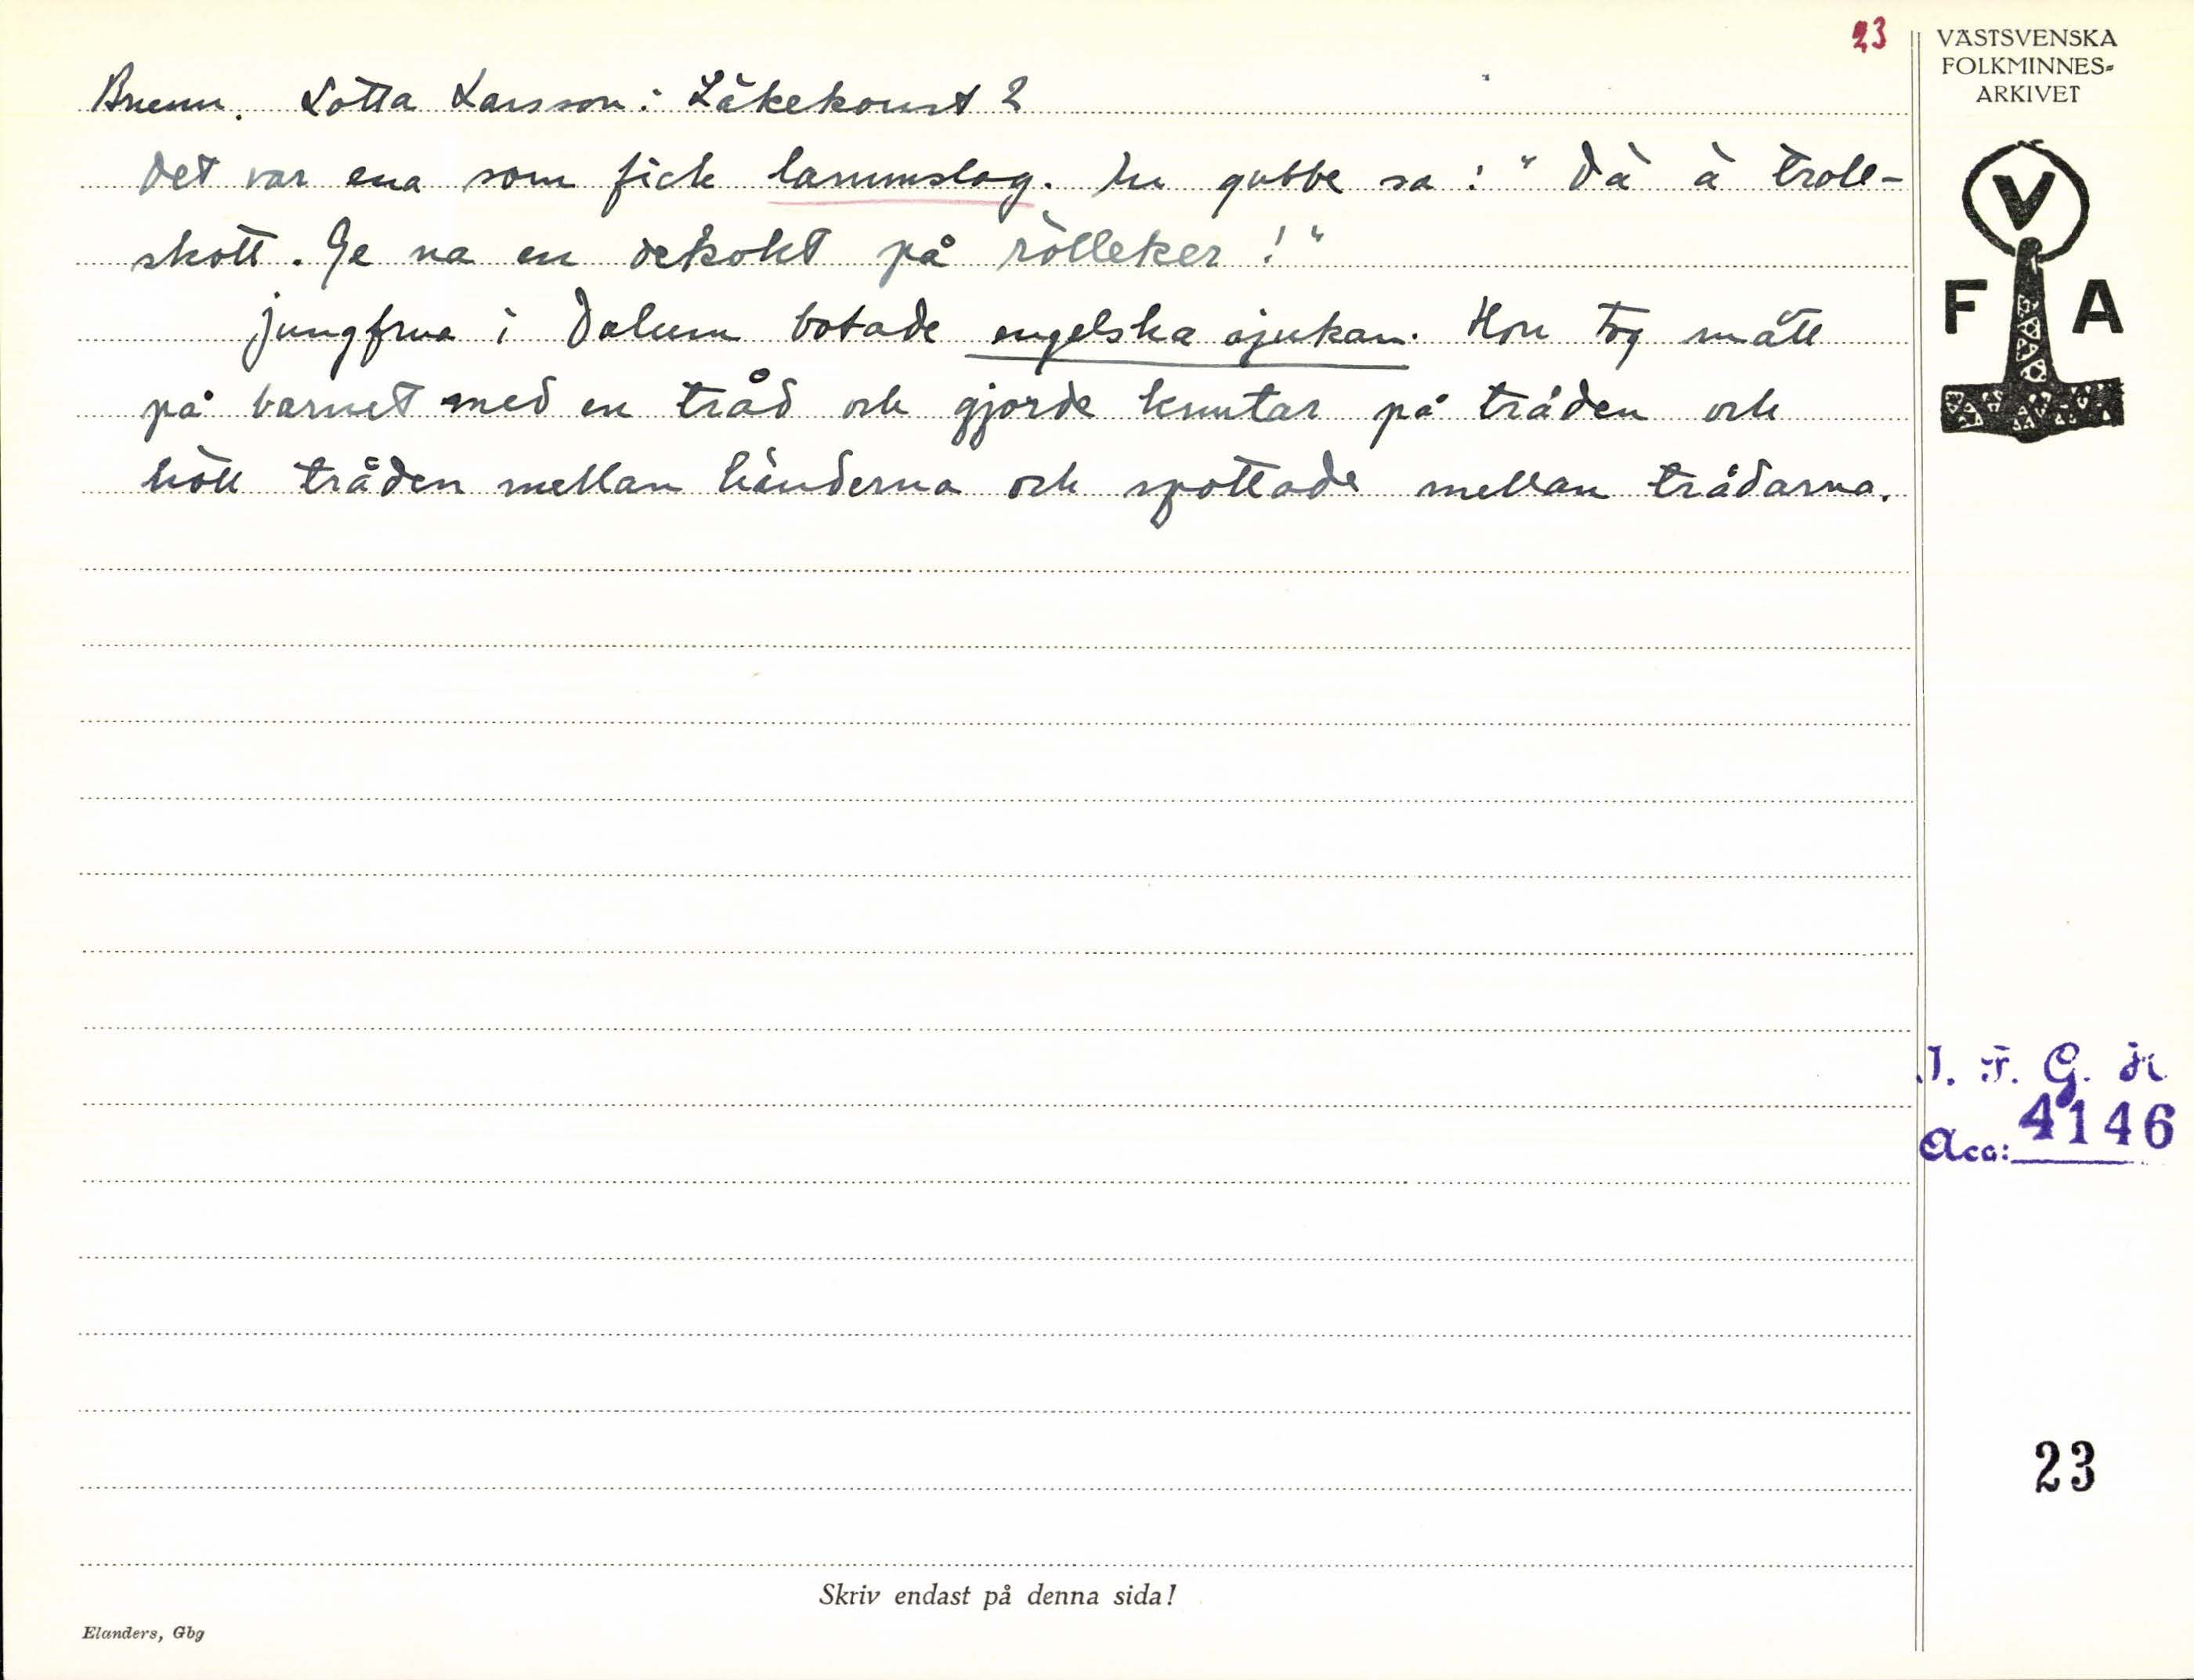 23
Brunn. Lotta Larsson: Läkekonst 2
Det var ena som fick lammslag. En gubbe sa: "Dä ä troll-
skott. Ge na en dekokt på rölleker!"
Jungfrua i Dalum botade engelska sjukan. Hon tog mått
på barnet med en tråd och gjorde knutar på tråden och
höll tråden mellan händerna och spottade mellan trådarna.
VÄSTSVENSKA
FOLKMINNES-
ARKIVET
V
F A
I. F. G. H
Acc: 4146
23
Skriv endast på denna sida!
Elanders, Gbg